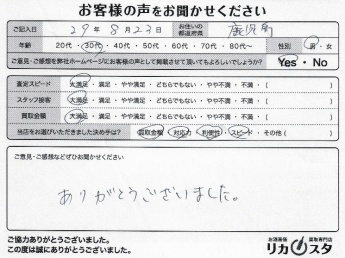 お客様の声をお聞かせください
ご記入日 29年 8月 23日 お住いの都道府県 鹿児島
年齢 20代・30代・40代・50代・60代・70代・80代〜 性別 男・女
ご意見・ご感想を弊社ホームページにお客様の声として掲載させて頂いてもよろしいでしょうか? Yes・No
査定スピード 大満足・満足・やや満足・どちらでもない・やや不満・不満・( )
スタッフ接客 大満足・満足・やや満足・どちらでもない・やや不満・不満・( )
買取金額 大満足・満足・やや満足・どちらでもない・やや不満・不満・( )
当店をお選びいただきました決め手は? 買取金額・対応力・利便性・スピード・その他( )
ご意見・ご感想などぜひお聞かせください
ありがとうございました。
ご協力ありがとうございました。
この度は誠にありがとうございました。
お酒高価買取専門店
リカスタ